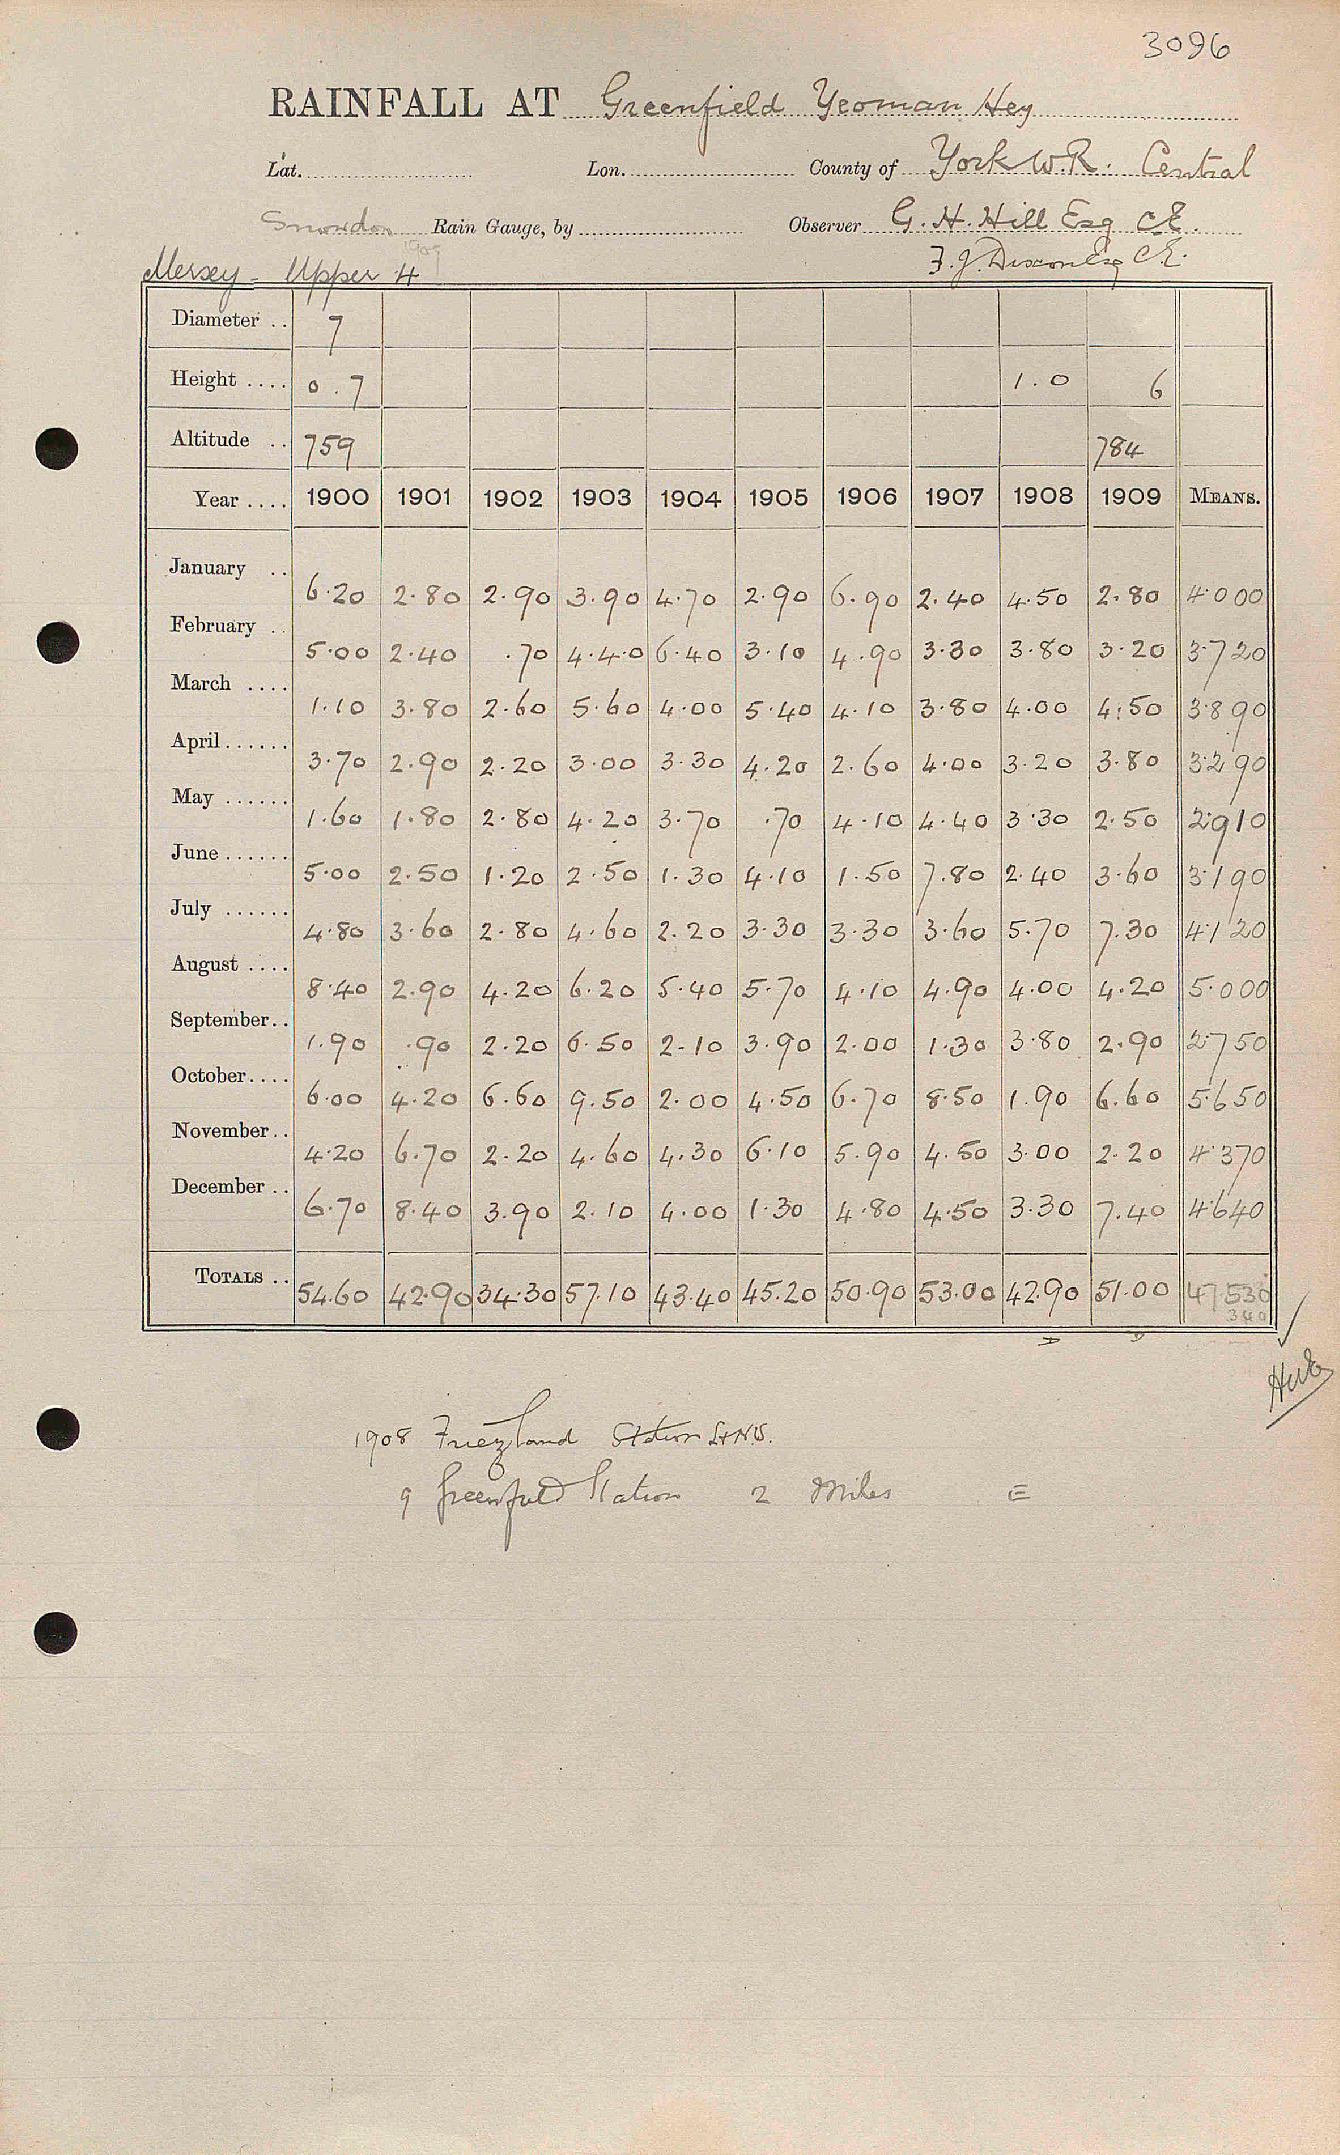 3096
RAINFALL AT Greenfield Yeoman Hey
Lat. Lon. County of York W.R. Central
Snowdon Rain Gauge, by Observer G. H. Hill Esq C.E.
Mersey - Upper 4 F. J. Dixon Esq C.E.
Diameter .. 7
Height .... 0.7 1.0 6
Altitude .. 759 784
Year .... 1900 1901 1902 1903 1904 1905 1906 1907 1908 1909 MEANS.
January .. 6.20 2.80 2.90 3.90 4.70 2.90 6.90 2.40 4.50 2.80 4.000
February .. 5.00 2.40 .70 4.40 6.40 3.10 4.90 3.30 3.80 3.20 3.720
March .... 1.10 3.80 2.60 5.60 4.00 5.40 4.10 3.80 4.00 4.50 3.890
April ...... 3.70 2.90 2.20 3.00 3.30 4.20 2.60 4.00 3.20 3.80 3.290
May ...... 1.60 1.80 2.80 4.20 3.70 .70 4.10 4.40 3.30 2.50 2.910
June ...... 5.00 2.50 1.20 2.50 1.30 4.10 1.50 7.80 2.40 3.60 3.190
July ...... 4.80 3.60 2.80 4.60 2.20 3.30 3.30 3.60 5.70 7.30 4.120
August .... 8.40 2.90 4.20 6.20 5.40 5.70 4.10 4.90 4.00 4.20 5.000
September.. 1.90 .90 2.20 6.50 2.10 3.90 2.00 1.30 3.80 2.90 2.750
October.... 6.00 4.20 6.60 9.50 2.00 4.50 6.70 8.50 1.90 6.60 5.650
November.. 4.20 6.70 2.20 4.60 4.30 6.10 5.90 4.50 3.00 2.20 4.370
December .. 6.70 8.40 3.90 2.10 4.00 1.30 4.80 4.50 3.30 7.40 4.640
TOTALS .. 54.60 42.90 34.30 57.10 43.40 45.20 50.90 53.00 42.90 51.00 47.530
1908 Friezland Station
9 Greenfield Station 2 Miles E